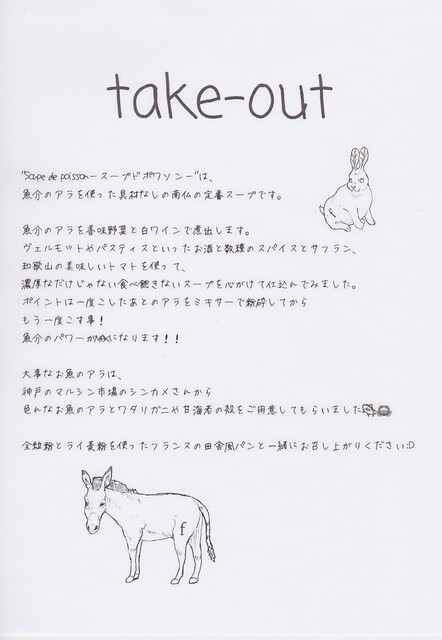 take-out
"Soupe de poisson－スープドポワソン－"は、
魚介のアラを使った具材なしの南仏の定番スープです。
魚介のアラを香味野菜と白ワインで煮出します。
ヴェルモットやパスティスといったお酒と数種のスパイスとサフラン、
和歌山の美味しいトマトを使って、
濃厚なだけじゃない食べ飽きないスープを心がけて仕込んでみました。
ポイントは一度こしたあとのアラをミキサーで粉砕してから
もう一度こす事！
魚介のパワーがMAXになります！！
大事なお魚のアラは、
神戸のマルシン市場のシンカメさんから
色んなお魚のアラとワタリガニや甘海老の殻をご用意してもらいました
全粒粉とライ麦粉を使ったフランスの田舎風パンと一緒にお召し上がりください:D
f
f